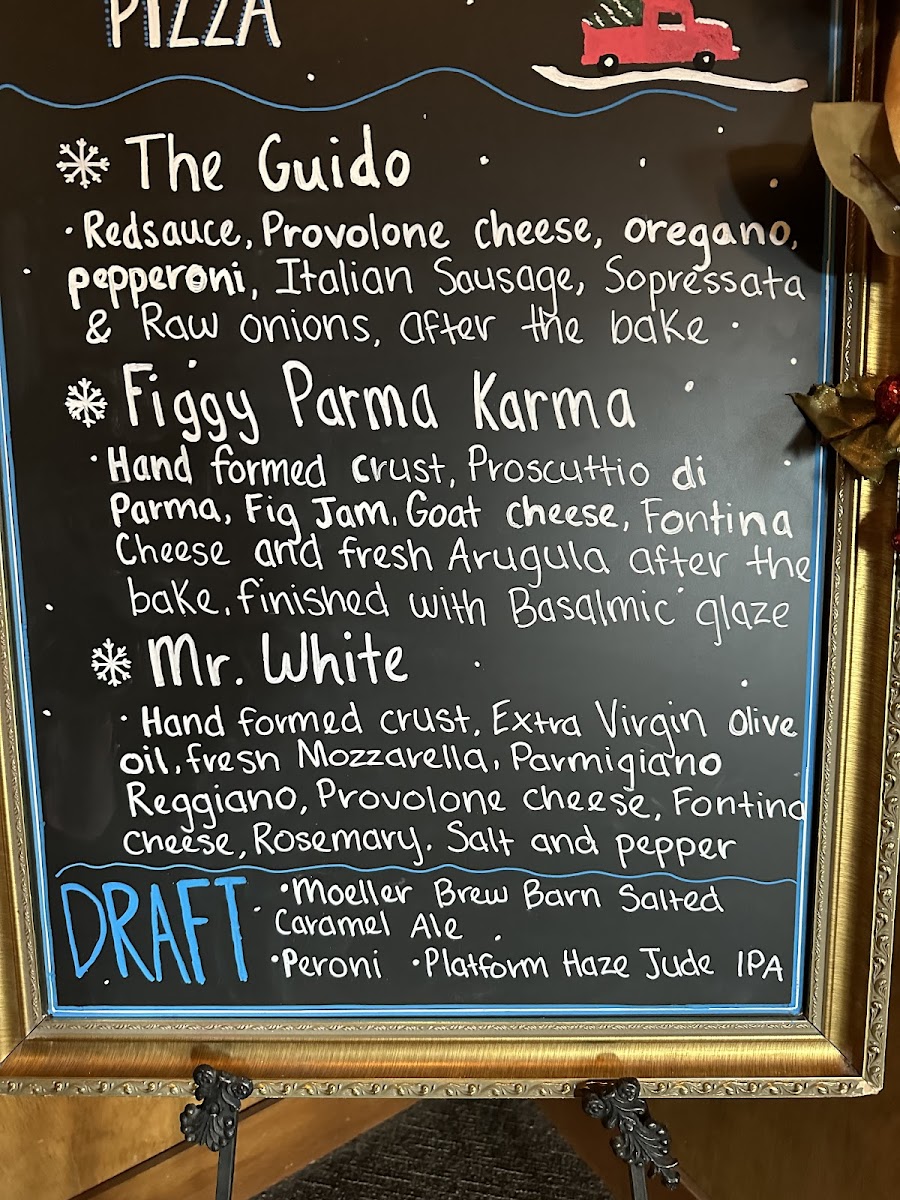 PIZZA
The Guido
· Redsauce, Provolone cheese, oregano,
pepperoni, Italian Sausage, Sopressata
& Raw onions, after the bake ·
Figgy Parma Karma
· Hand formed crust, Proscuttio di
Parma, Fig Jam, Goat cheese, Fontina
Cheese and fresh Arugula after the
bake, finished with Basalmic glaze
Mr. White
· Hand formed crust, Extra Virgin olive
oil, fresh Mozzarella, Parmigiano
Reggiano, Provolone cheese, Fontina
cheese, Rosemary. Salt and pepper
DRAFT
· Moeller Brew Barn Salted
Caramel Ale
· Peroni · Platform Haze Jude IPA